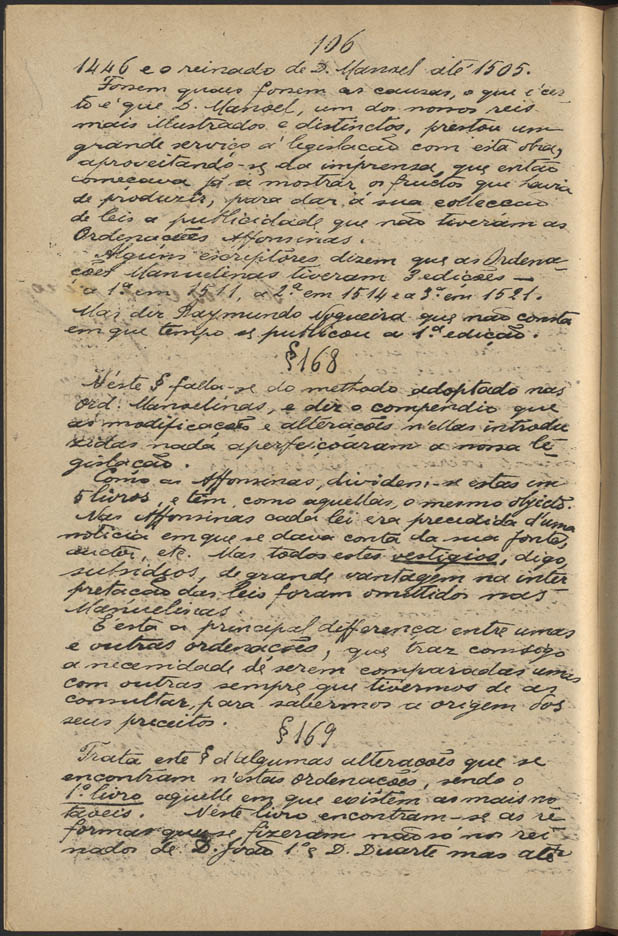 106
1446 e o reinado de D. Manoel até 1505.
Fossem quaes fossem as causas, o que é cer-
to é que D. Manoel, um dos nossos reis
mais illustrados e distinctos, prestou um
grande serviço á legislação com esta obra,
aproveitando-se da imprensa, que então
começava já a mostrar os fructos que havia
de produzir, para dar á sua collecção
de leis a publicidade que não tiveram as
Ordenações Affonsinas.
Alguns escriptores dizem que as Ordena-
ções Manuelinas tiveram 3 edições —
a 1ª em 1511, a 2ª em 1514 e a 3ª em 1521.
Mas diz Raymundo Nogueira que não consta
em que tempo se publicou a 1ª edição.
§168
N'éste § falla-se do methodo adoptado nas
Ord. Manoelinas, e diz o compendio que
as modificações e alterações n'ellas introdu
zidas nada aperfeiçoaram a nossa le
gislação.
Como as Affonsinas, dividem-se estas em
5 livros, e têm, como aquellas, o mesmo objecto.
Nas Affonsinas cada lei era precedida d'uma
noticia em que se dava conta da sua fonte,
auctor, etc. Mas todos estes vestigios, digo,
subsidios, de grande vantagem na inter
pretação das leis foram omittidos nas
Manuelinas.
É esta a principal differença entre umas
e outras ordenações, que traz comsigo
a necessidade de serem comparadas umas
com outras sempre que tivermos de as
consultar, para sabermos a origem dos
seus preceitos.
§169
Trata este § d'algumas alterações que se
encontram n'estas ordenações, sendo o
1º livro aquelle em que existem as mais no
taveis. Neste livro encontram-se as re
formas que se fizeram não só nos rei
nados de D. João 1º e D. Duarte mas até